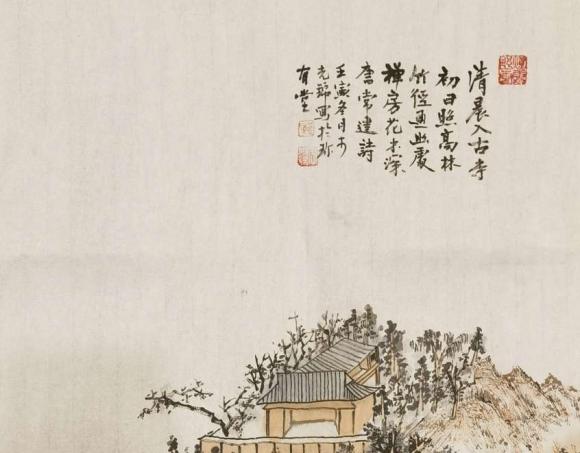 清晨入古寺
初日照高林
竹径通幽處
禅房花木深
唐常建詩
壬寅冬月于
元瑞写於弥
有堂